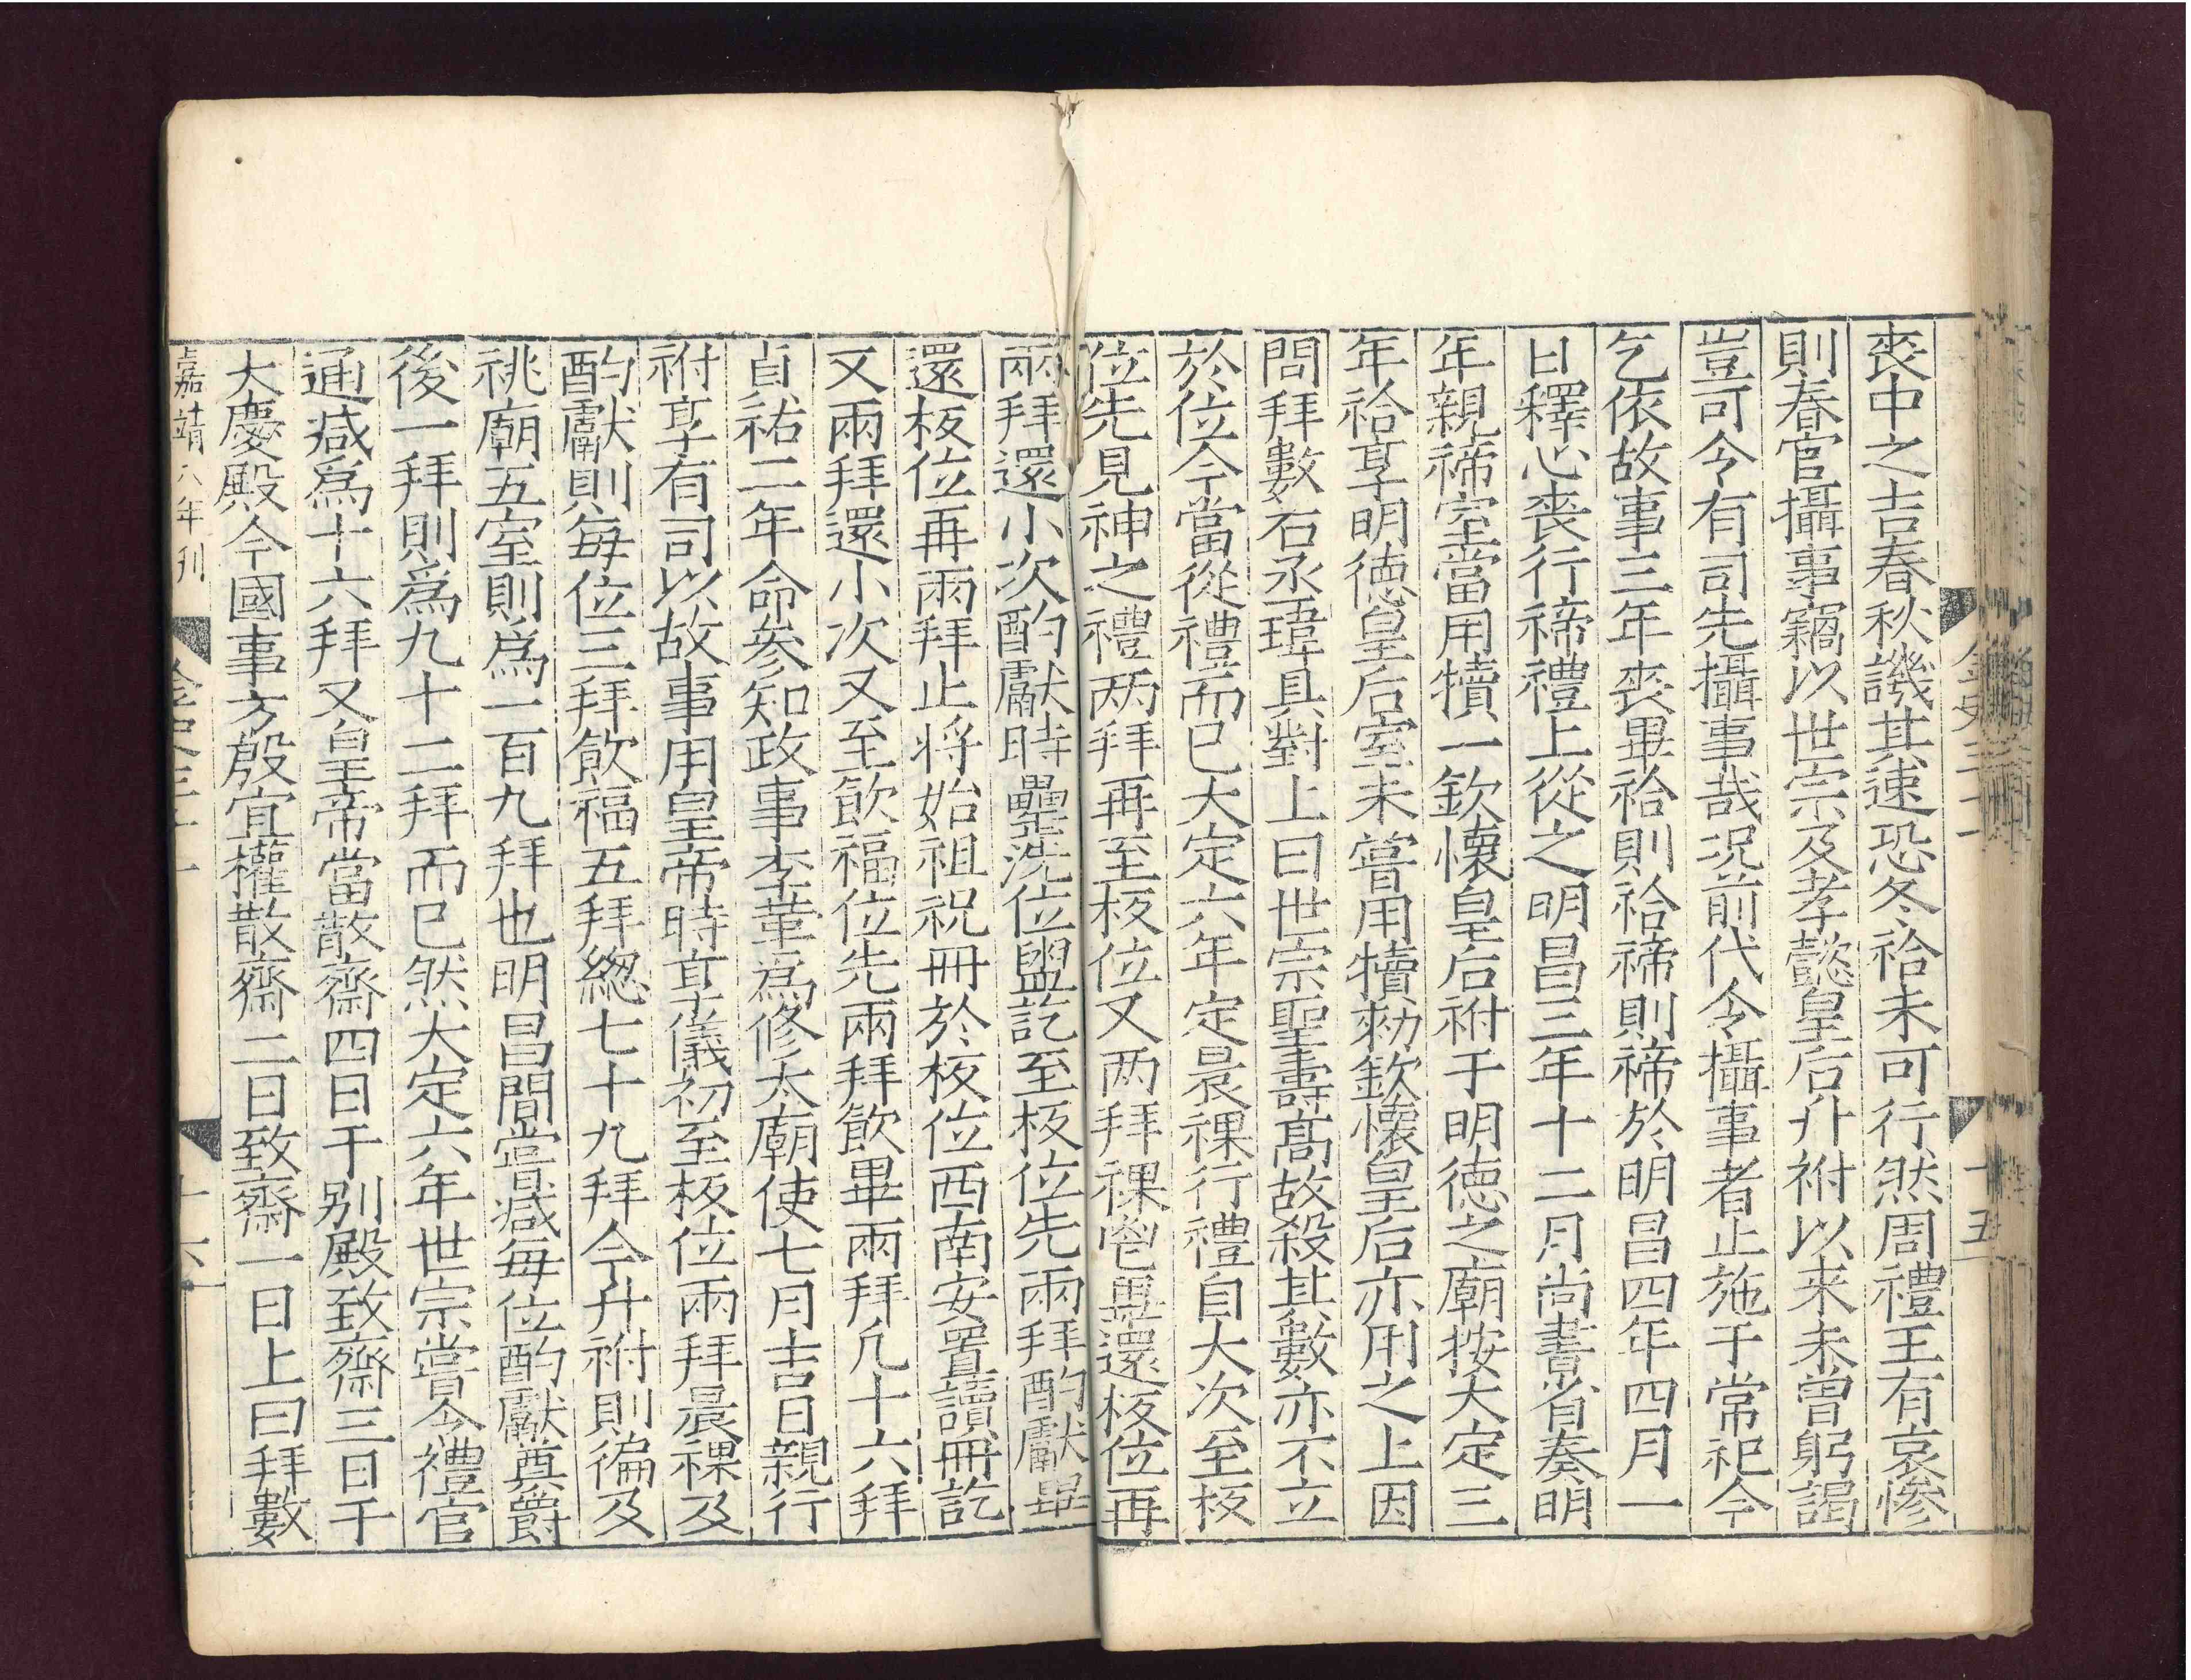 喪中之吉春秋譏其速恐冬祫未可行然周禮王有哀慘
則春官攝事竊以世宗及孝懿皇后升祔以来未曾躬謁
豈可令有司先攝事哉況前代令攝事者止施于常祀今
乞依故事三年喪畢祫則祫禘則禘於明昌四年四月一
日釋心喪行禘禮上從之明昌三年十二月尚書省奏明
年親禘室當用犢一欽懷皇后祔于明德之廟按大定三
年祫享明德皇后室未嘗用犢勑欽懷皇后亦用之上因
問拜數石丞瑋具對上曰世宗聖壽髙故殺其數亦不立
於位今當從禮而已大定六年定晨祼行禮自大次至板
位先見神之禮两拜再至板位又两拜祼鬯畢還板位再
兩拜還小次酌獻時罍洗位盥訖至板位先兩拜酌獻畢
還板位再兩拜止将始祖祝冊於板位西南安置讀冊訖
又兩拜還小次又至飮福位先兩拜飮畢兩拜凡十六拜
貞祐二年命參知政事李革爲修太廟使七月吉日親行
祔享有司以故事用皇帝時享儀初至板位兩拜晨祼及
酌獻則每位三拜飮福五拜總七十九拜今升祔則徧及
祧廟五室則爲一百九拜也明昌間嘗減每位酌獻奠爵
後一拜則爲九十二拜而已然大定六年世宗嘗令禮官
通减爲十六拜又皇帝當散齋四日于别殿致齋三日于
大慶殿今國事方殷宜權散齋二日致齋一日上曰拜數
嘉靖八年刊
金史三十一
十六
金史三十一
十五